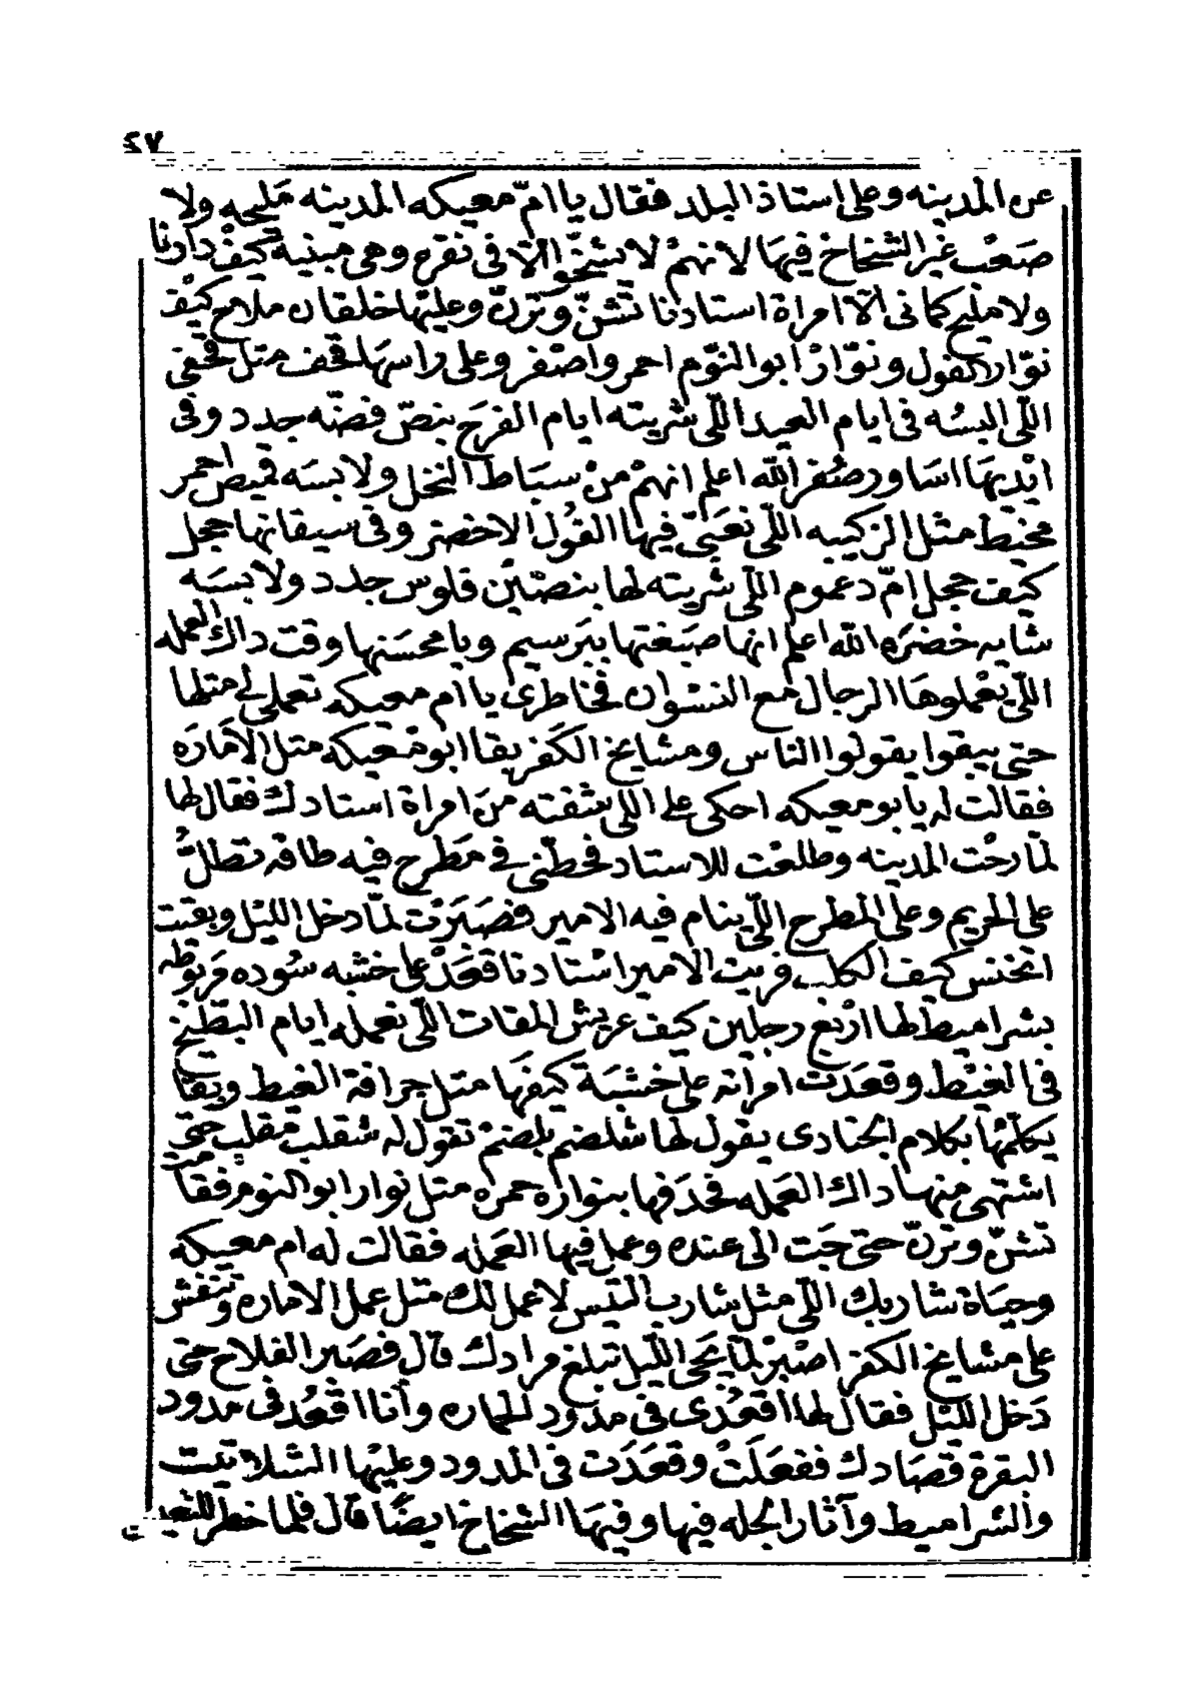 ٢٧
عن المدينه وعلى استاذ البلد فقال يا امّ معيكه المدينه مليحه ولا
صَعْب غير الشخاخ فيهَا لانهمْ لا يشخّو الّا فى نقره وهى مبنيه كيفْ دارنا
ولا مليح كمانى الّا امراة استادنا تشنّ وترنّ وعليها خلقان ملاح كيْف
نوّار الفول ونوّار ابو النّوم احمر واصْفر وعلى راسهَا قحف مثل قحفى
اللّى البسُه فى ايام العيد اللّى شريته ايام الفرح بنصّ فضّه جدد وفى
ايْديهَا اسَاور صُفر اللّه اعلم انهمْ منْ سبَاط النخل ولابسَه قميص احمر
مخيط مثل الزكيبه اللّى نعَبّى فيها الفُول الاخضر وفى سيقانها حجل
كيف حجل امّ دعموم اللّى شريته لها بنصّيْن فلوس جدد ولابسَه
شايه خضرَه اللّه اعلم انها صبَغتها ببَرسيم ويا محسَنها وقت داك العمله
اللّى يعْملوهَا الرجال مع النسْوان فخاطرى يا ام معيكه تعملى لى متلها
حتى يبقوا يقولوا الناس ومشايخ الكَفر بقا ابو مْعيكه متل الاَمارَه
فقالت له يا بو معيكه احكى على اللى شفته منَ امراة استادك فقال لها
لمّا رحْت المدينه وطلعْت للاستاد فحطّنى فى مَطرح فيه طاقه تطلُّ
على الحريم وعلى المطرح اللّى ينام فيه الامير فصَبَرْت لمّا دخل الليْل وبقيت
اتخنس كيف الكلب فريت الامير استادنا قعَدْ على خشبه سُوده مَربوطه
بشراميط لها ارْبع رجلين كيف عريش المقات اللّى نعمله ايام البطّيخ
فى الغيْط وقعَدَت امراته على خشبَة كيفهَا متل جرافة الغيط وبقا
يكلّمها بكلام الجنادى يقول لها شلضم بلضمْ تقول له شقلب مقلب حتّى
اشتهى منها داك العَمله فحدَفها بنواره حمره متل نوار ابو النوم فقامت
تشنّ وترنّ حتى جَت الى عنده وعمل فيها العَمله فقالت له ام معيكه
وحيَاة شاربك اللّى مثل شارب التيس لاعمل لك متل عمل الاماره وتنفش
على مشايخ الكفر اصْبرْ لمّا يَجى اللّيل تبلغ مرادك قال فصَبر الفلاح حتى
دَخل الليْل فقال لها اقعُدى فى مدود الحماره وأنا اقعُد فى مدود
البقرة قصَادك ففعَلَتْ وقعَدَت فى المدود وعليْها الشلاتيت
والشراميط وآثار الجله فيها وفيهَا الشخاخ ايضًا قال فلما خطر للنعيـ